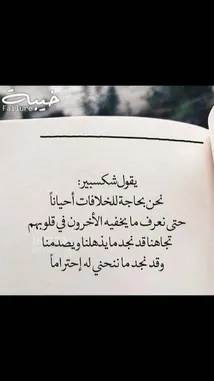 خيبة
Failure
يقول شكسبير:
نحن بحاجة للخلافات أحياناً
حتى نعرف ما يخفيه الأخرون في قلوبهم
تجاهنا قد نجد ما يذهلنا ويصدمنا
وقد نجد ما ننحني له إحتراماً